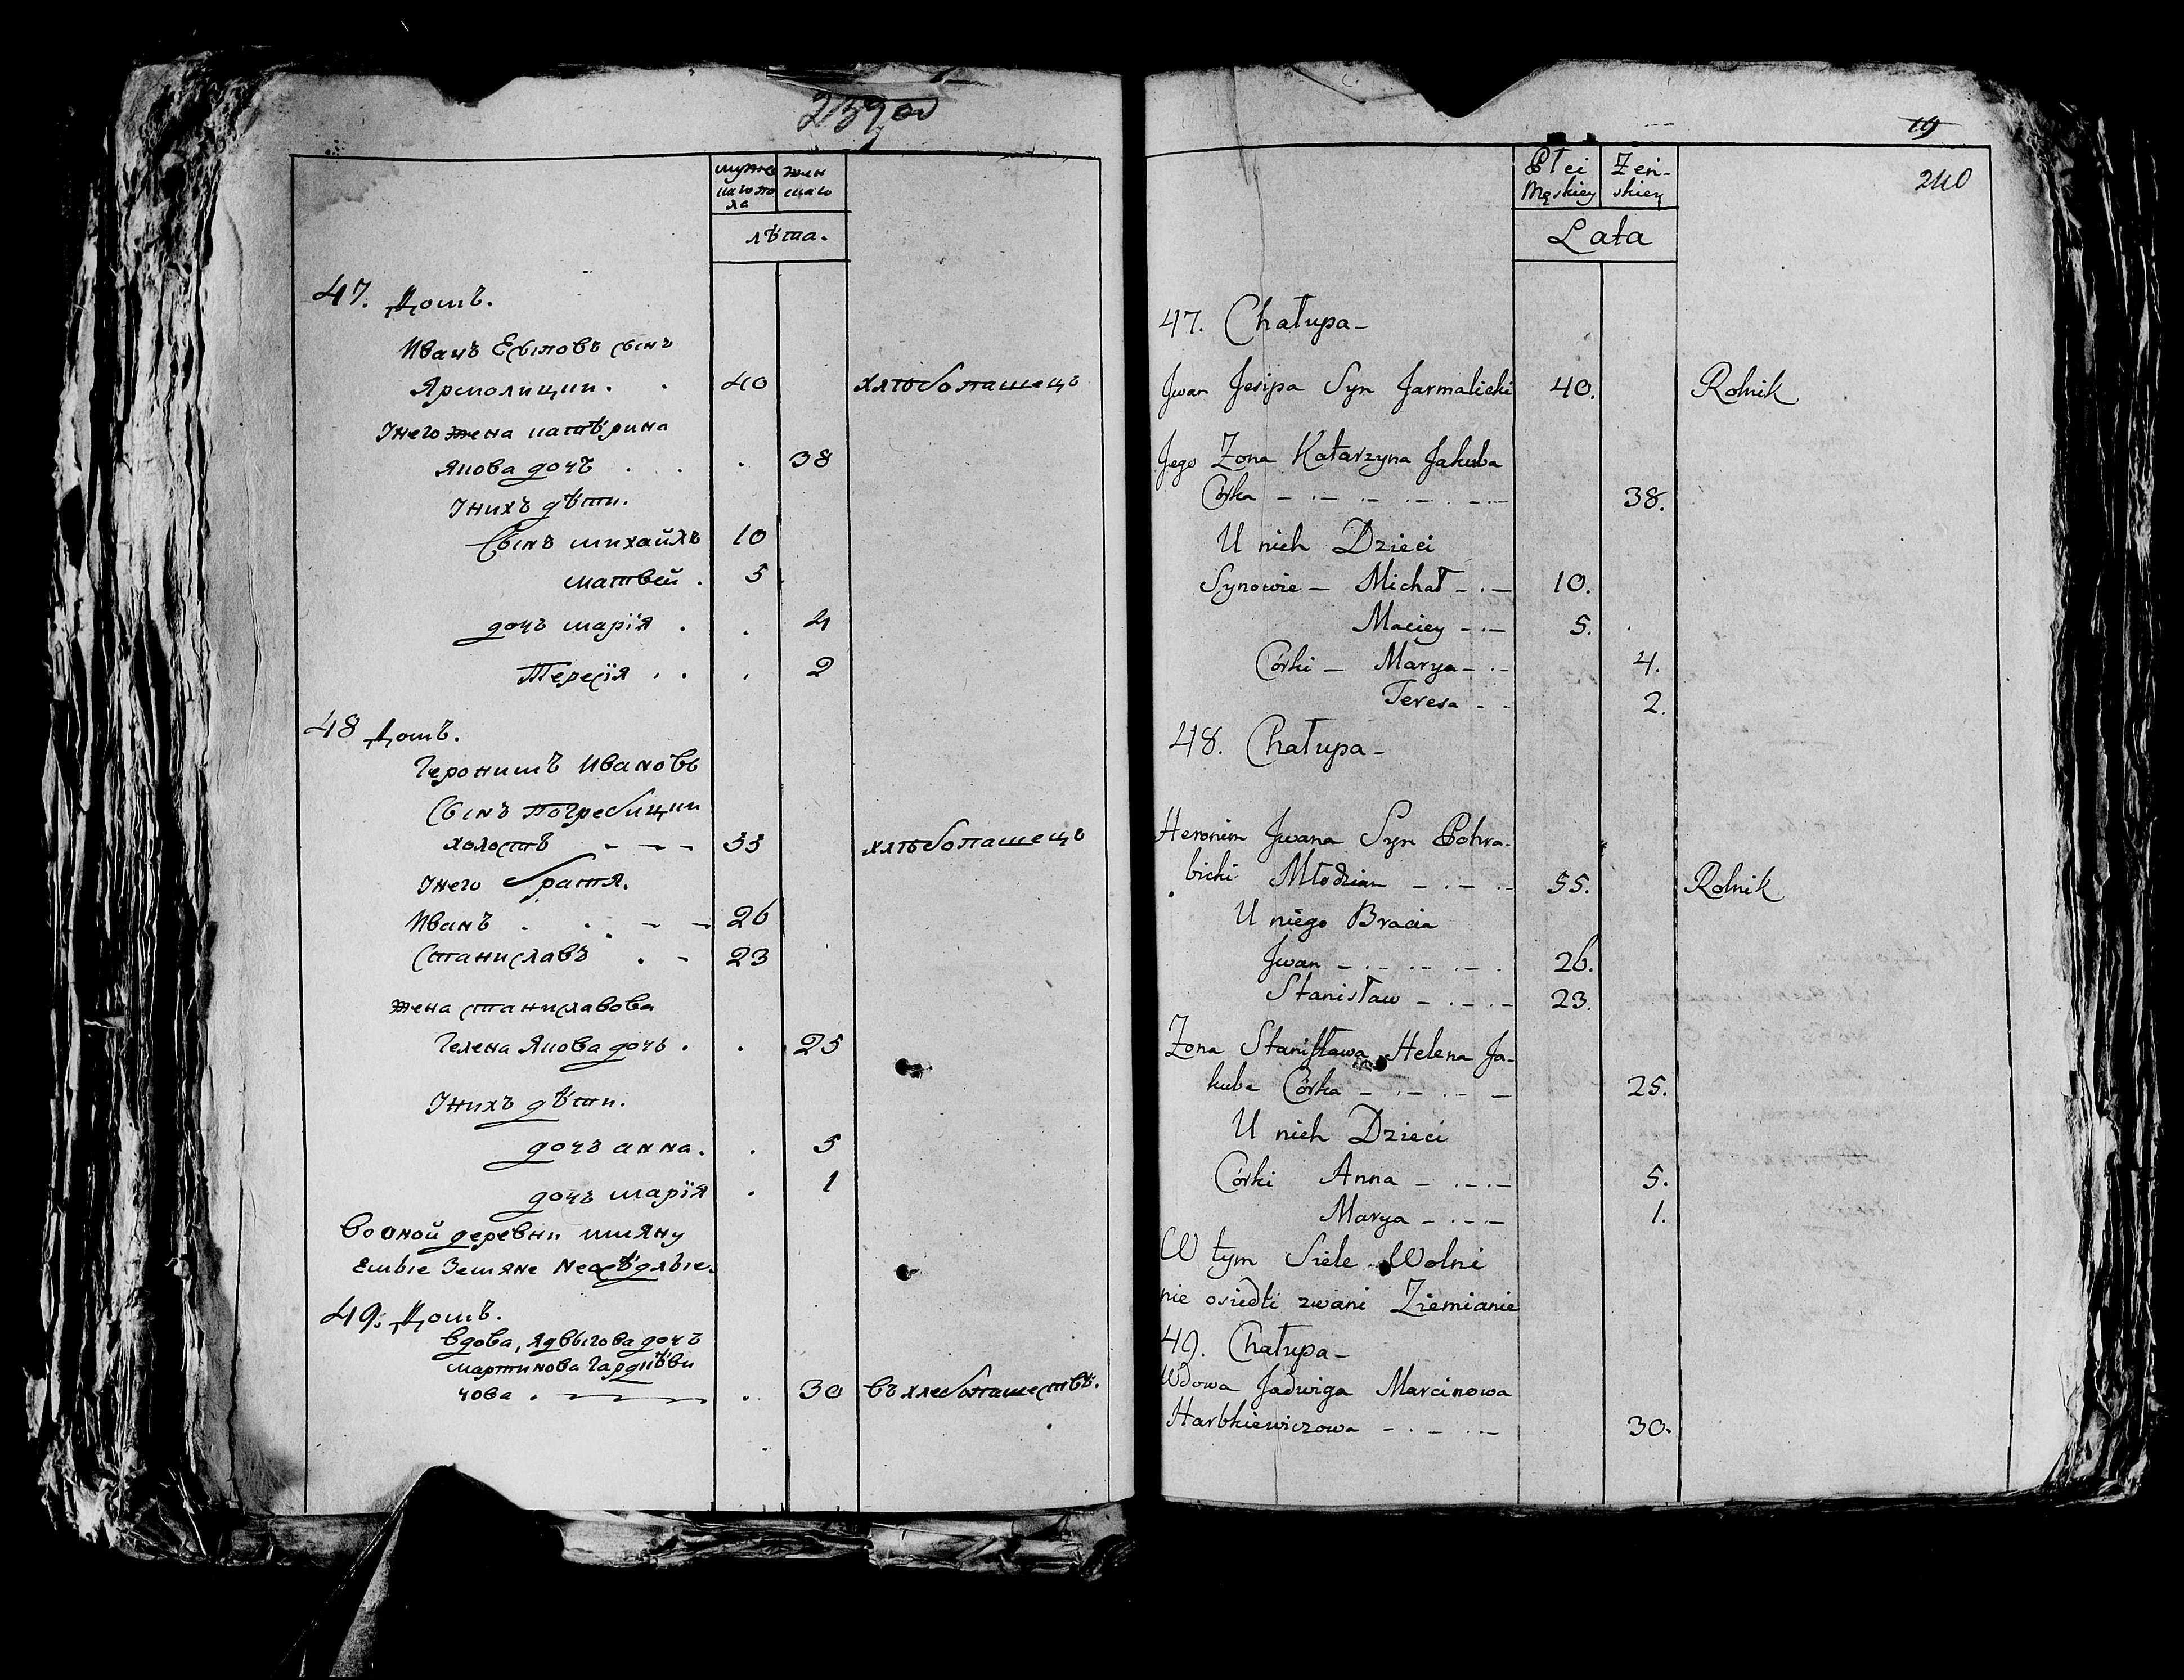 239 об
мужескаго пола
женскаго
лѣта.
47. Домъ.
Иванъ Есыповъ сынъ
Ярмолицки. 40 хлѣбопашецъ
У него жена катѣрина
якова дочъ 38
У нихъ дѣти.
Сынъ михайлъ 10
матвей. 5
дочъ марія 4
Тересія 2
48 Домъ.
Геронимъ Ивановъ
Сынъ Погребицки
холостъ 55 хлѣбопашецъ
У него братя.
Иванъ 26
Станиславъ 23
жена станиславова
Гелена Якова дочъ. 25
У нихъ дѣти.
дочъ анна. 5
дочъ марія 1
Во оной деревни имяну
емые Земяне Неосѣдлые.
49. Домъ.
вдова, ядвыгова дочъ
мартинова Гардкѣви
чова. 30 въ хлебопашествѣ.
19
240
Płci Męskiey
Żeń-skiey
Lata
47. Chałupa
Jwan Jesipa Syn Jarmalicki 40. Rolnik
Jego Żona Katarzyna Jakuba
Córka 38.
U nich Dzieci
Synowie Michał 10.
Maciey 5.
Córki Marya 4.
Teresa 2.
48. Chałupa
Heronim Jwana Syn Pohra-
bicki Młodzian 55. Rolnik
U niego Bracia
Jwan 26.
Stanisław 23.
Żona Stanisława Helena Ja-
kuba Córka 25.
U nich Dzieci
Córki Anna 5.
Marya 1.
W tym Siele Wolni
nie osiedli zwani Ziemianie
49. Chałupa
Wdowa Jadwiga Marcinowa
Harbkiewiczowa 30.